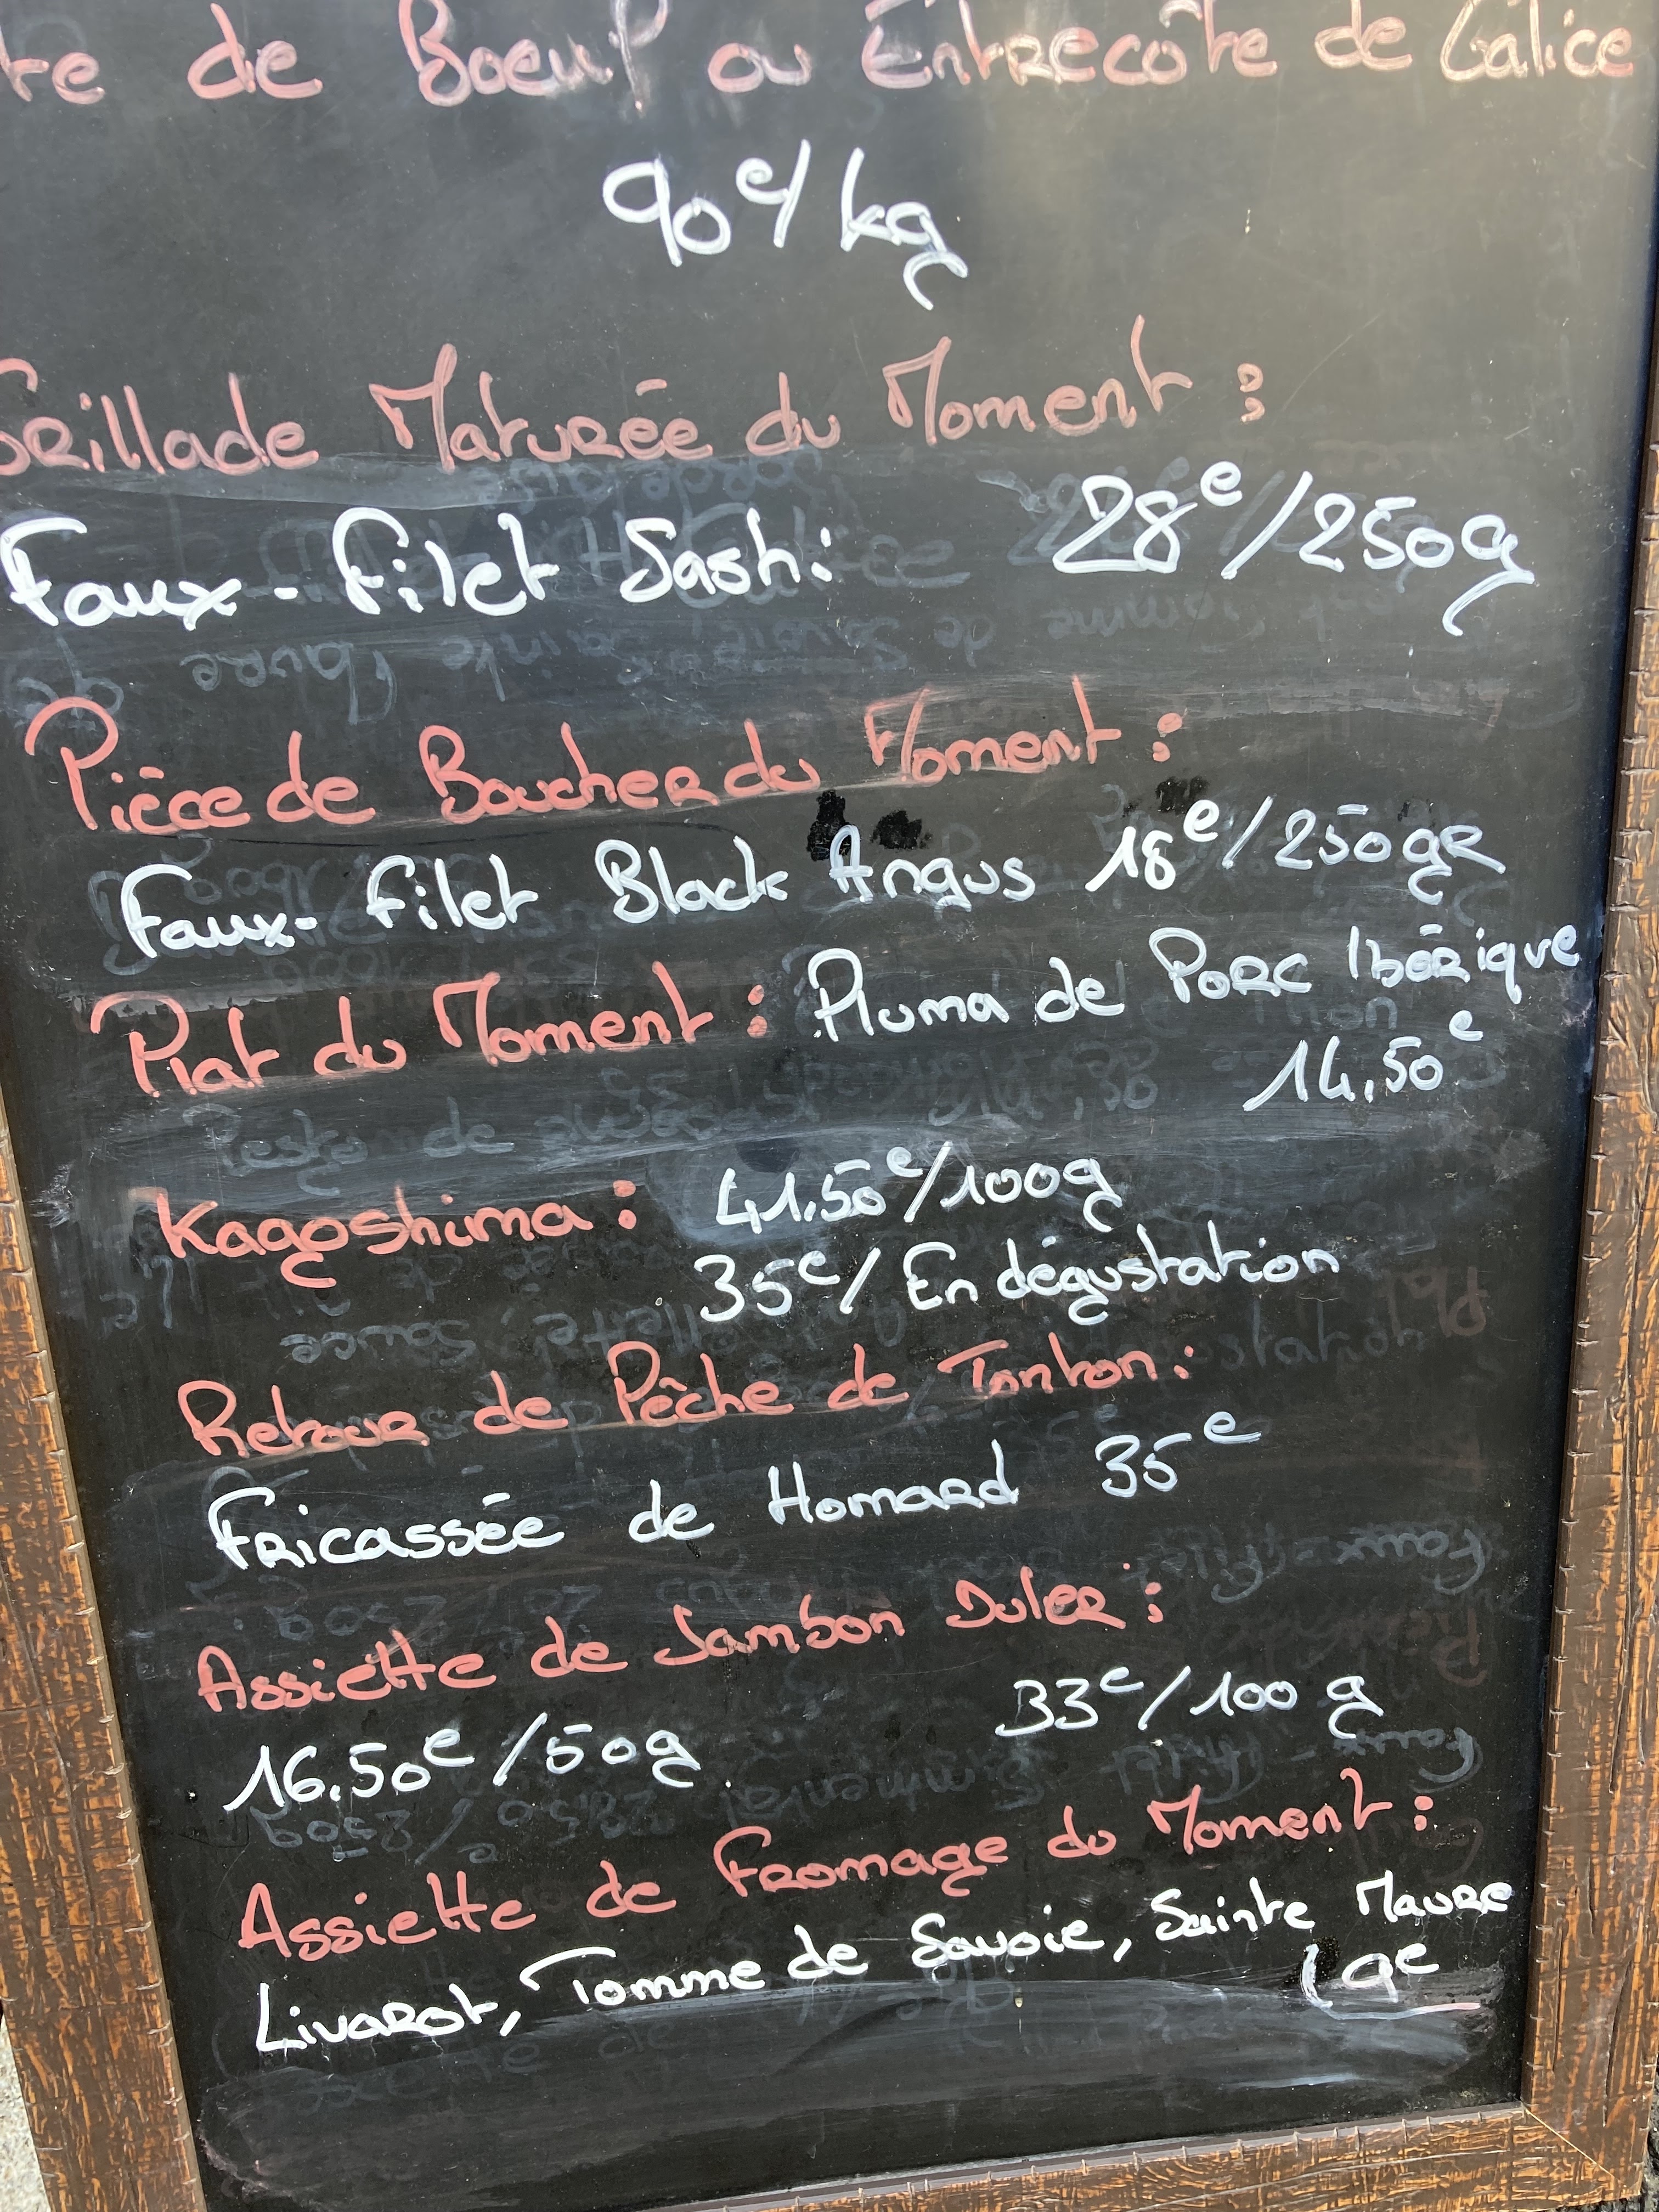 de Boeuf ou Entrecôte de Galice
90e/kg
Grillade Maturée du Moment :
Faux-Filet Sashi: 28e/250g
Pièce de Boucher du Moment :
Faux-Filet Black Angus 18e/250gr
Plat du Moment : Pluma de Porc Ibérique
14,50e
Kagoshima : 41.50e/100g
35e/ En dégustation
Retour de Pêche de Tonton :
Fricassée de Homard 35e
Assiette de Jambon Duler :
16.50e/50g 33e/100 g
Assiette de Fromage du Moment :
Livarot, Tomme de Savoie, Sainte Maure
9e